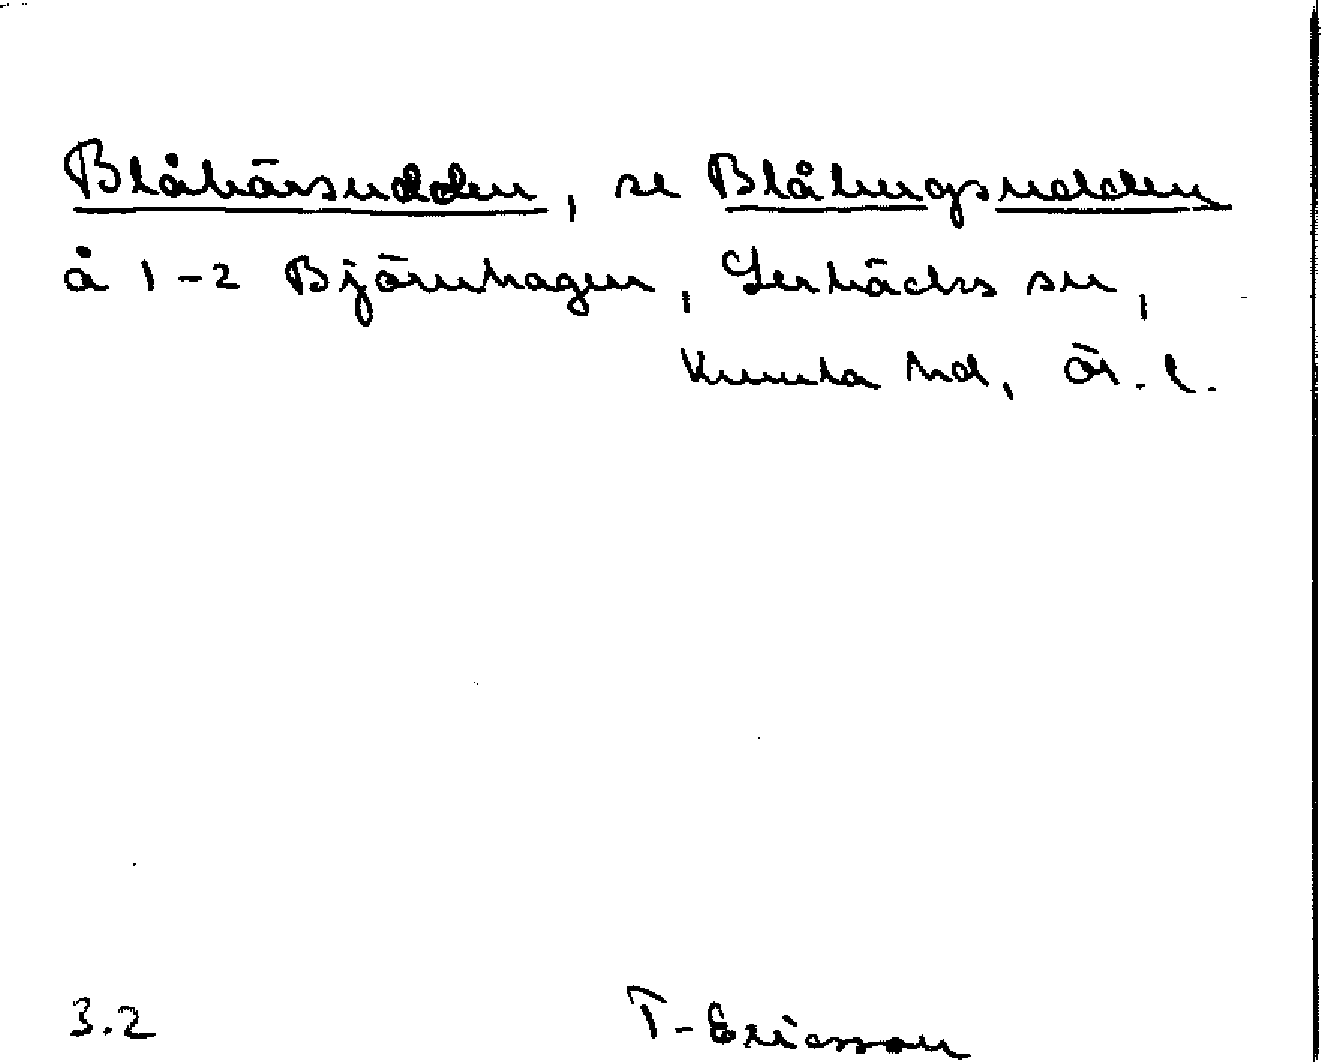 Blåbärsudden, se Blåbergsudden
å 1-2 Björnhagen, Lerbäcks sn,
Kumla hd, Ör. l.
3.2 T-Ericsson